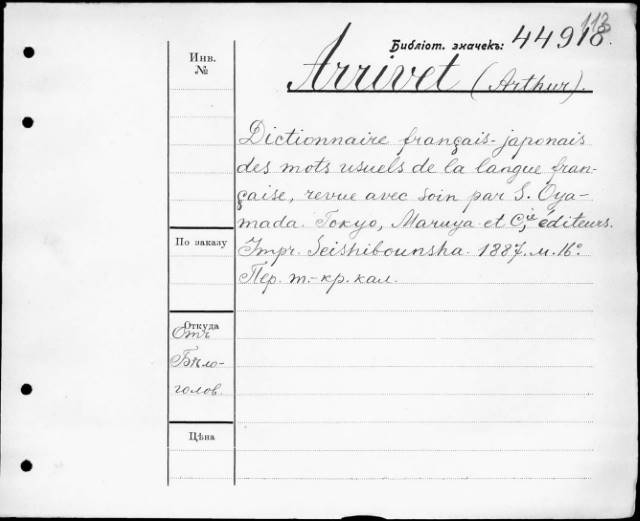 113
Библіот. значекъ: 44918.
Инв.
№
Arrivet (Arthur).
Dictionnaire français-japonais
des mots usuels de la langue fran-
çaise, revue avec soin par S. Oya-
mada. Tokyo, Maruya et Cie, éditeurs.
По заказу
Impr. Seishibounsha. 1887. м. 16º
Пер. т.-кр. кал.
Откуда
Отъ
Бѣло-
голов.
Цѣна